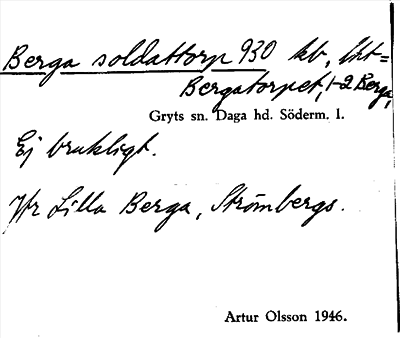 Berga soldattorp 930 kb, Lht=
Bergatorpet, 1-2 Berga,
Gryts sn. Daga hd. Söderm. l.
Ej brukligt.
Jfr Lilla Berga, Strömbergs.
Artur Olsson 1946.